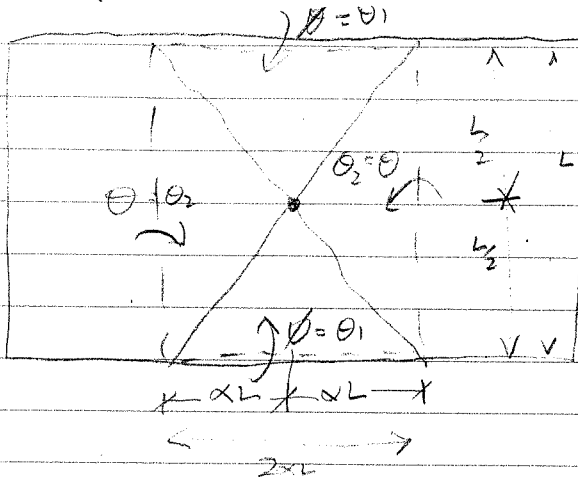 ∅ = θ1
L/2
L
θ2 = θ
θ θ2
L/2
∅ = θ1
αL αL
2αL